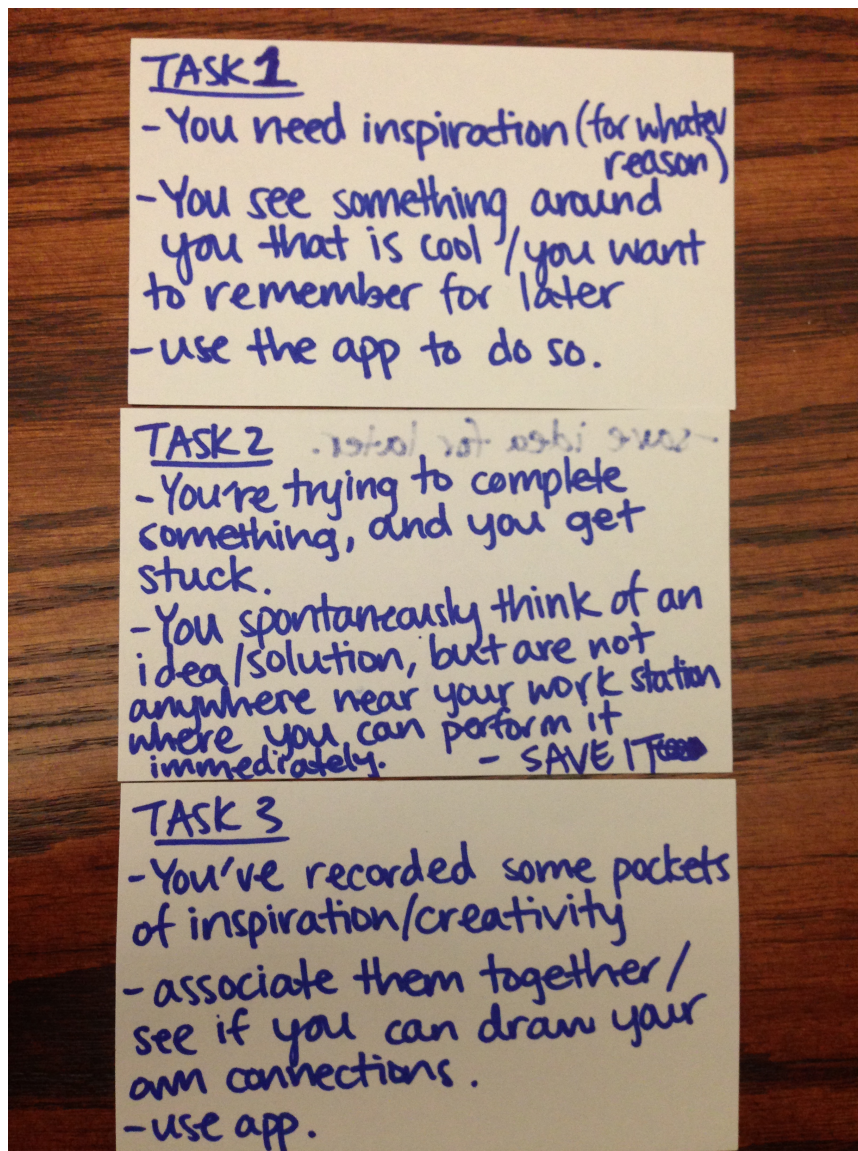 TASK 1
- You need inspiration (for whatev
reason)
- You see something around
you that is cool / you want
to remember for later
- use the app to do so.
TASK 2
- save idea for later.
- You're trying to complete
something, and you get
stuck.
- You spontaneously think of an
idea/solution, but are not
anywhere near your work station
where you can perform it
immediately. - SAVE IT
TASK 3
- You've recorded some pockets
of inspiration/creativity
- associate them together/
see if you can draw your
own connections.
- use app.